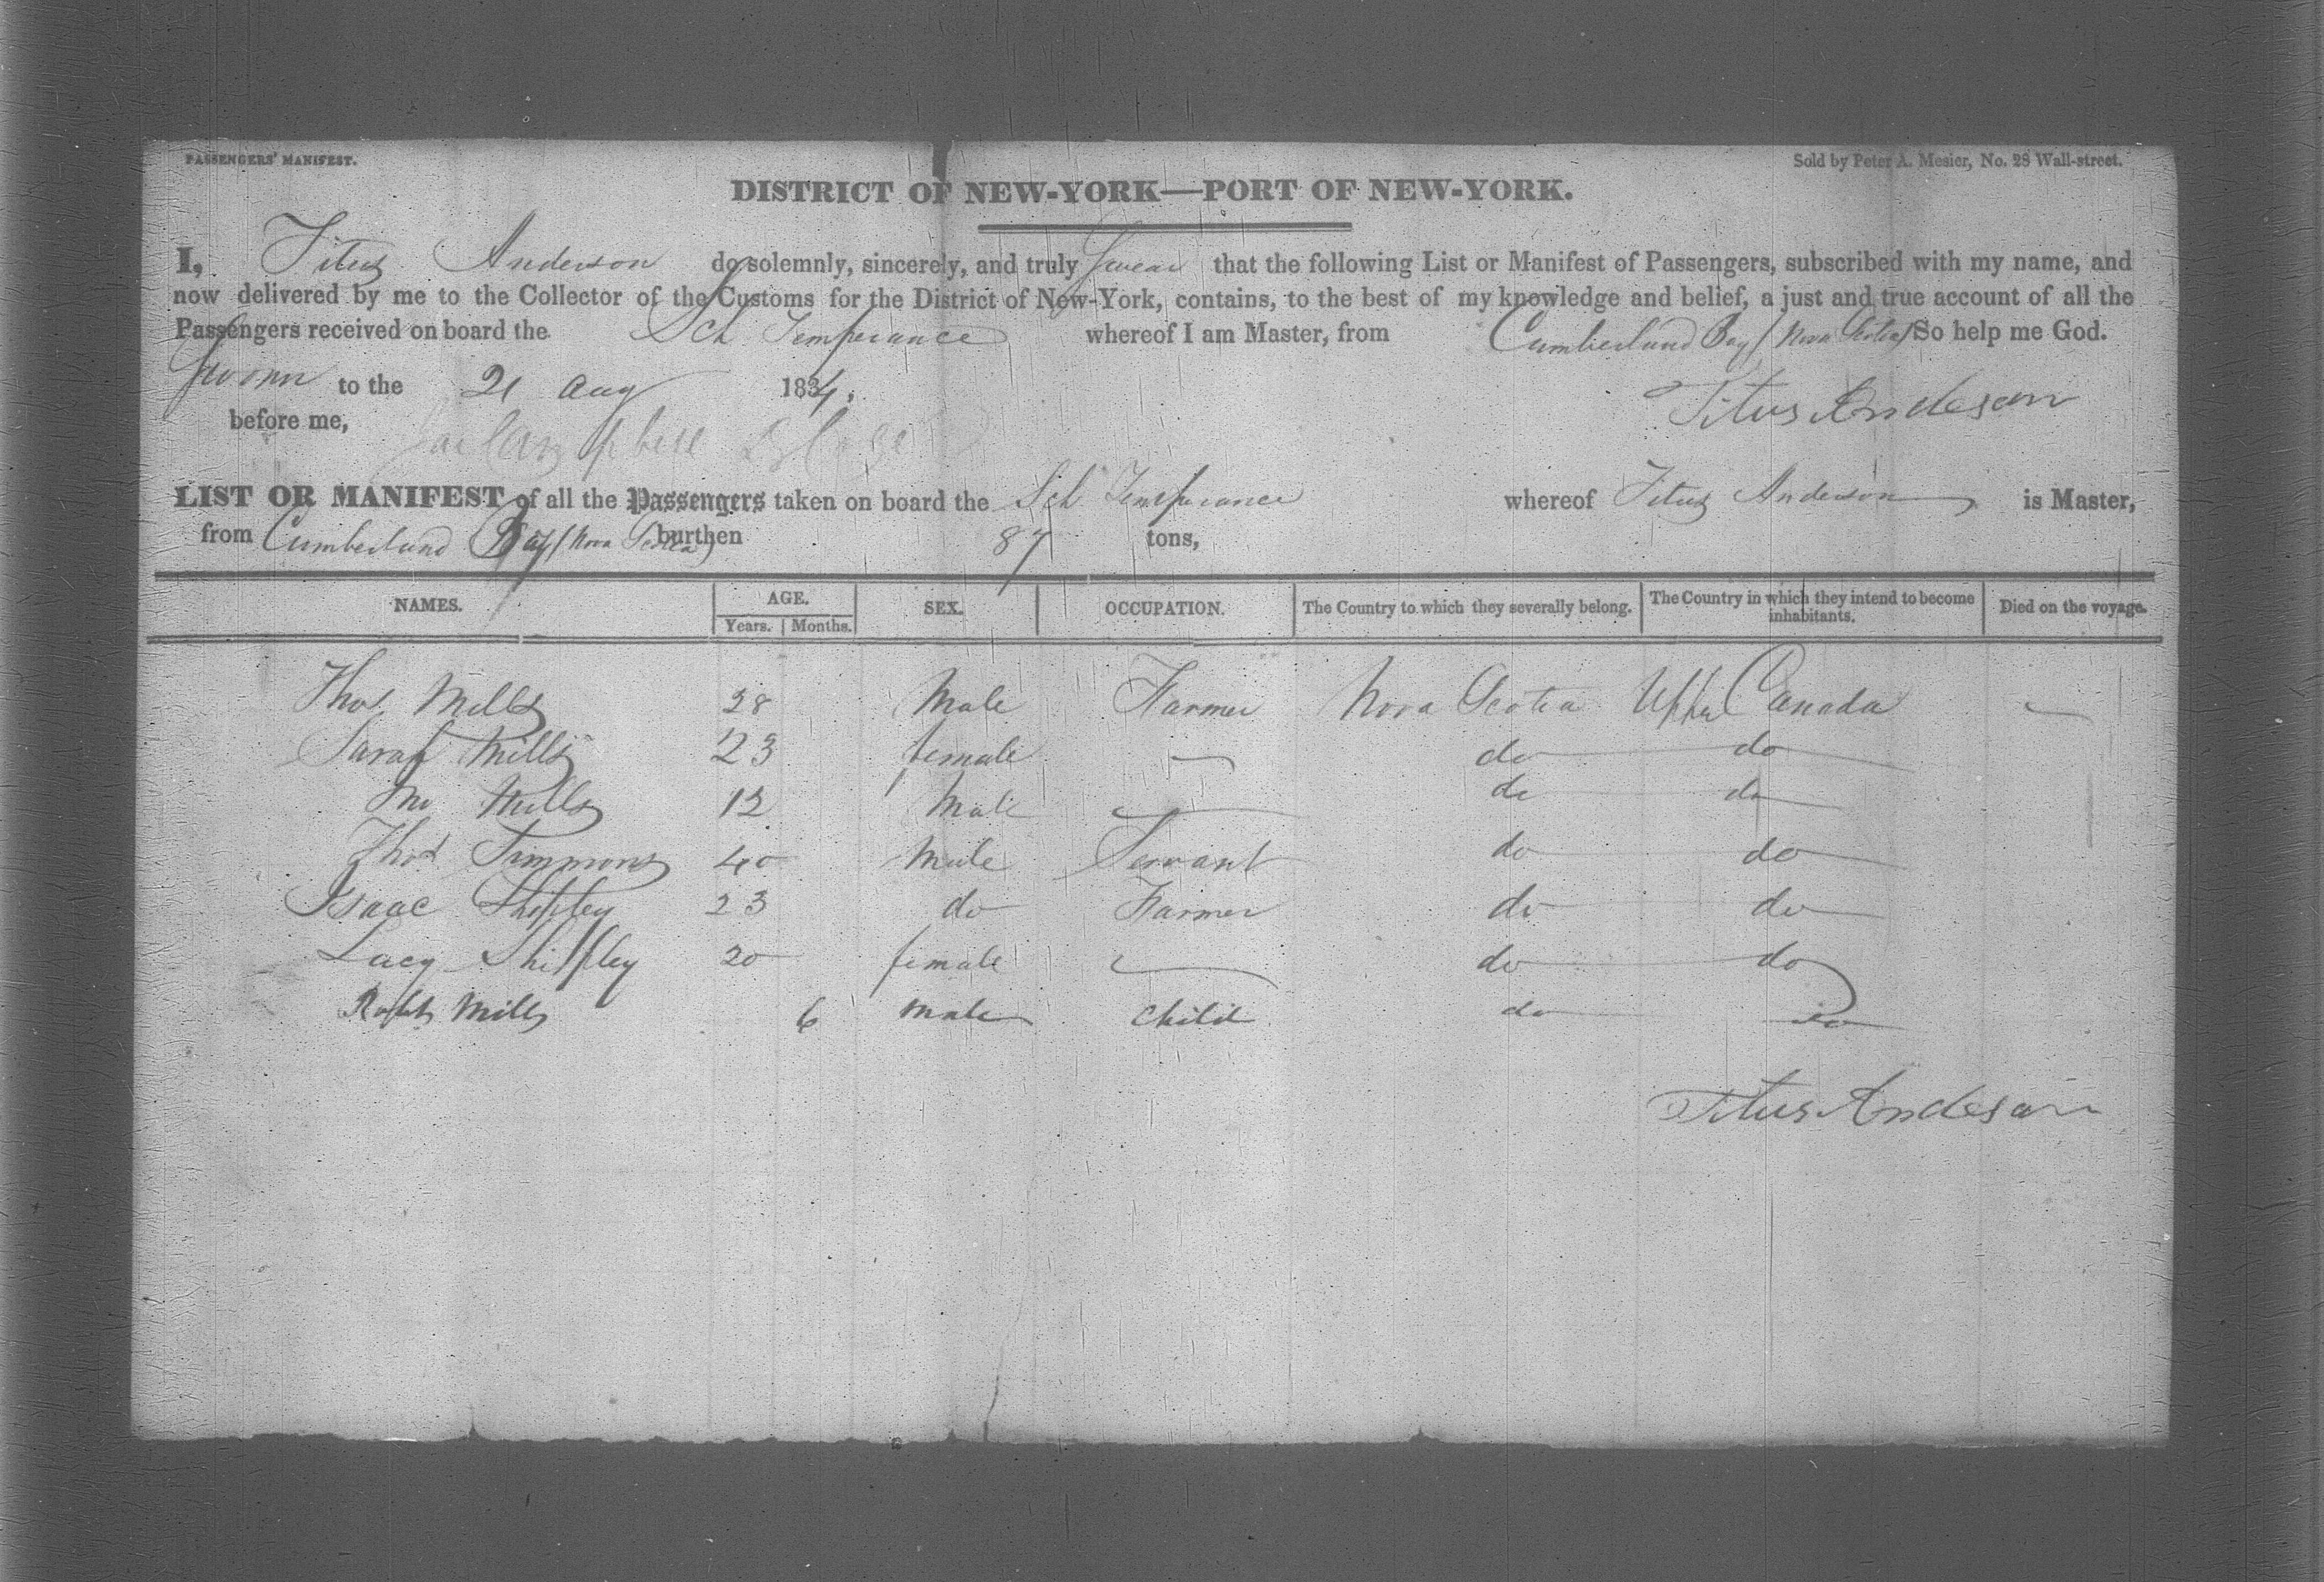 PASSENGERS' MANIFEST.
Sold by Peter A. Mesier, No. 28 Wall-street.
DISTRICT OF NEW-YORK—PORT OF NEW-YORK.
I, Titus Anderson do solemnly, sincerely, and truly Swear that the following List or Manifest of Passengers, subscribed with my name, and
now delivered by me to the Collector of the Customs for the District of New-York, contains, to the best of my knowledge and belief, a just and true account of all the
Passengers received on board the Sch Temperance whereof I am Master, from Cumberland Bay (Nova Scotia) So help me God.
Sworn to the 21 Aug 1834.
Titus Andeson
before me,
LIST OR MANIFEST of all the Passengers taken on board the Sch Temperance whereof Titus Anderson is Master,
from Cumberland Bay (Nova Scotia) burthen 87 tons,
NAMES. AGE. SEX. OCCUPATION. The Country to which they severally belong. The Country in which they intend to become inhabitants. Died on the voyage.
Years. Months.
Thos Mills 28 Male Farmer Nova Scotia Upper Canada —
Sarah Mills 23 female — do do
Mills 12 Male — do do
Thos Simmons 40 Male Servant do do
Isaac Shipley 23 do Farmer do do
Lucy Shipley 20 female — do do
Robt Mills 6 Male Child do do
Titus Andeson